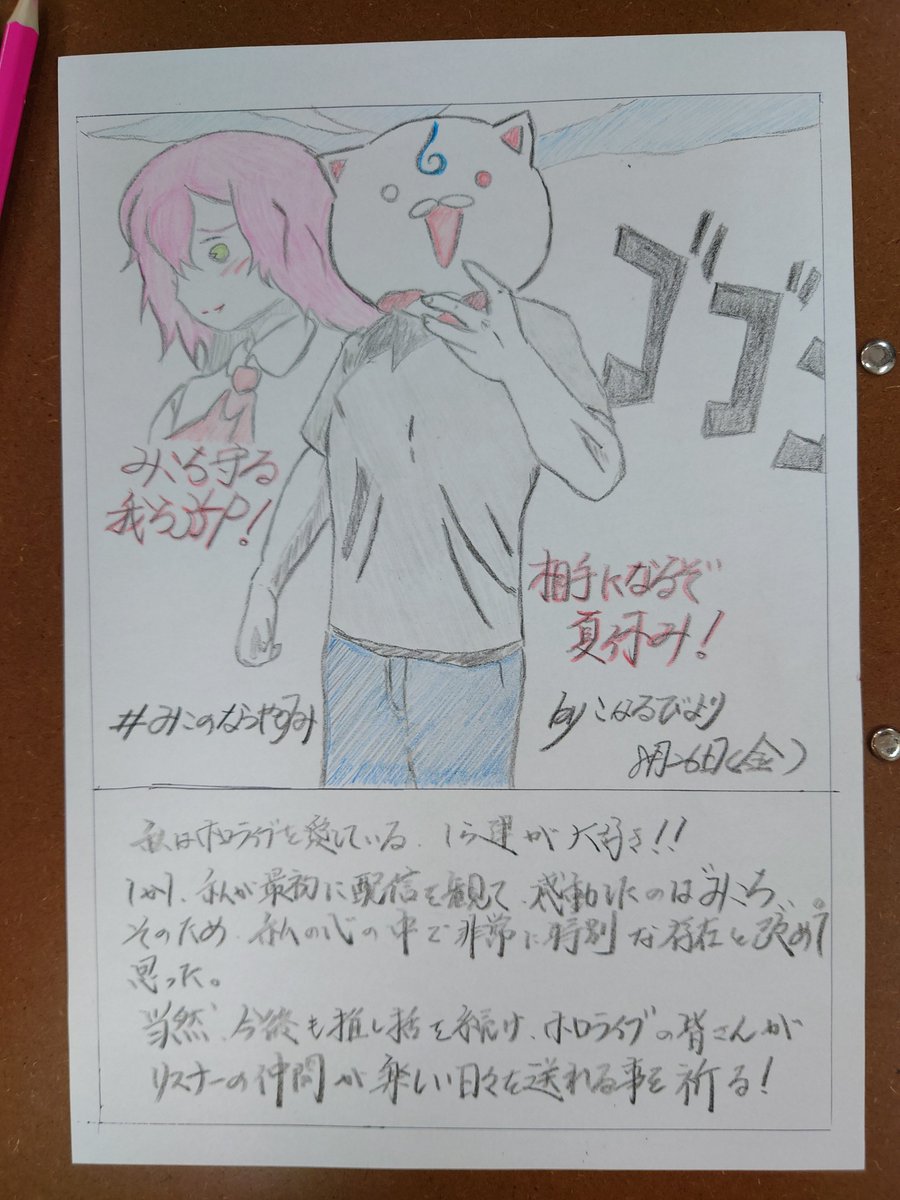 ゴゴ
みこち守る
我ら35P!
相手になるぞ
夏休み!
#みこのなつやすみ
by こはるびより
8月26日(金)
私はホロライブを愛している、達が大好き!!
しかし、私が最初に配信を観て、感動したのは"みこち"。
そのため、私の心の中で非常に特別な存在と改めて
思った。
当然、今後も推し活を続け、ホロライブの皆さんが
リスナーの仲間が楽しい日々を送れる事を祈る!